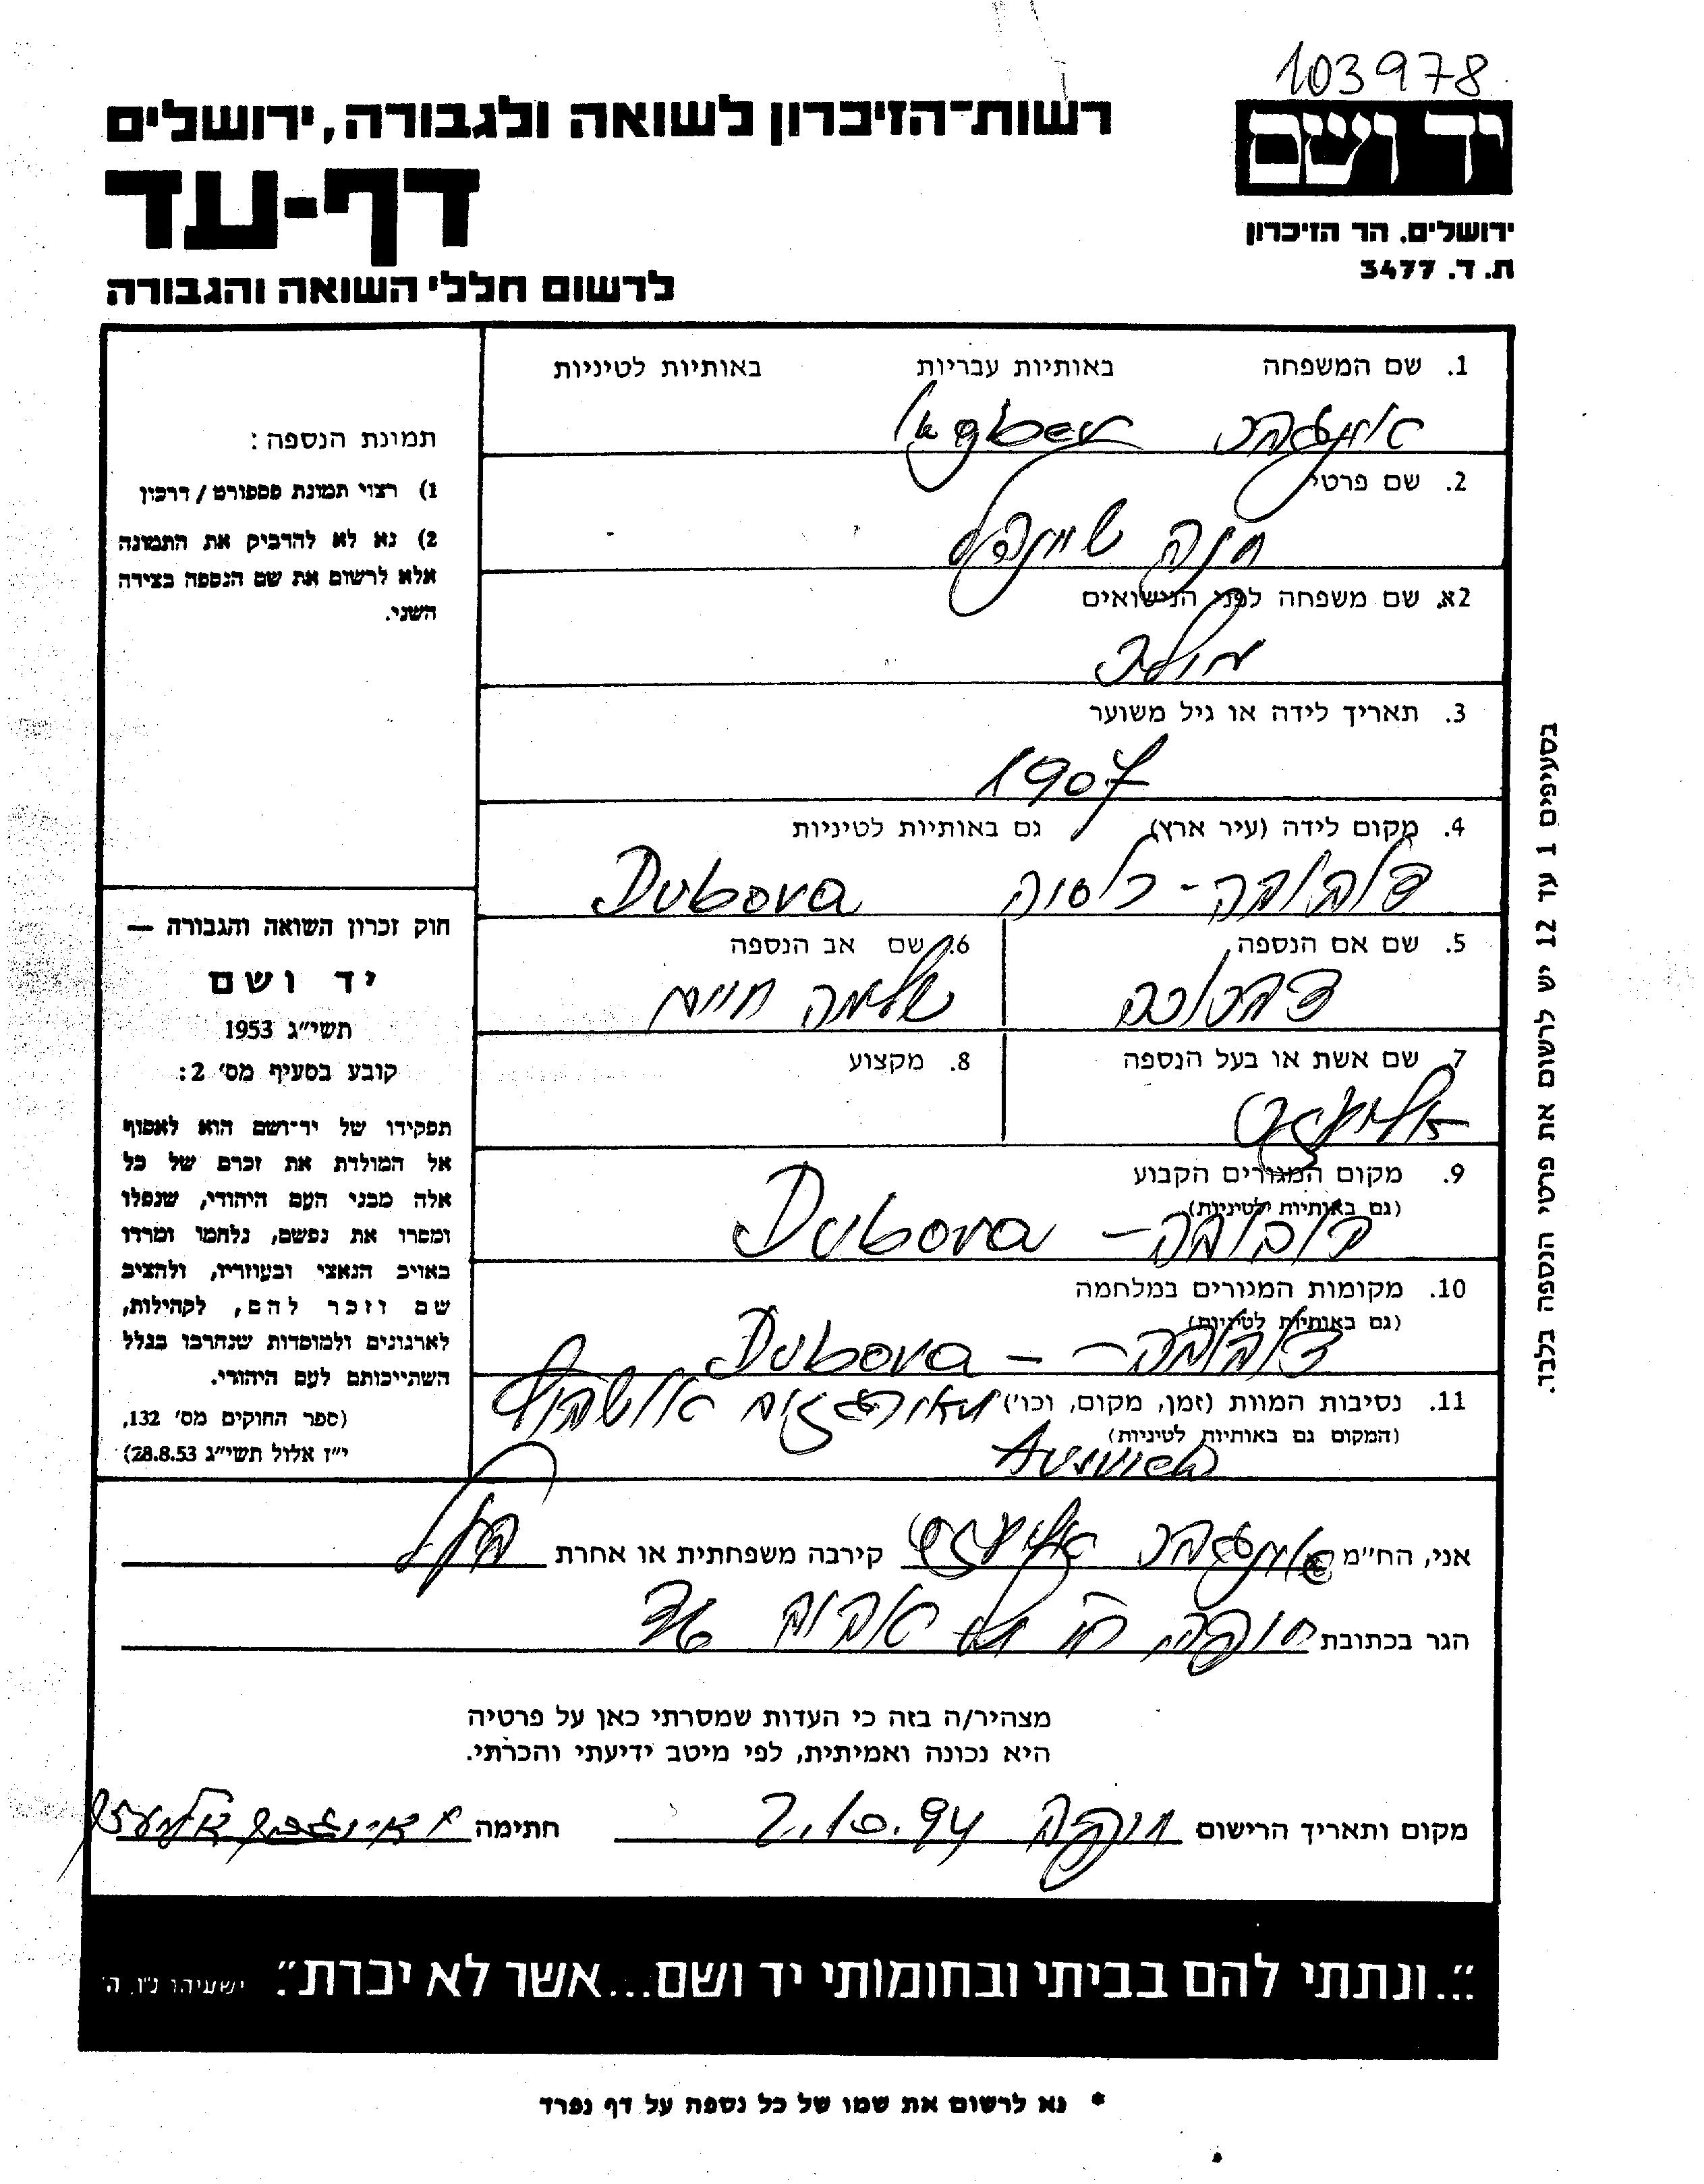 103978
רשות-הזיכרון לשואה ולגבורה, ירושלים
יד ושם
דף-עד
ירושלים, הר הזיכרון
ת. ד. 3477
לרשום חללי השואה והגבורה
1. שם המשפחה באותיות עבריות באותיות לטיניות
2. שם פרטי
חנה
2א. שם משפחה לפני הנישואים
3. תאריך לידה או גיל משוער
1907
4. מקום לידה (עיר ארץ) גם באותיות לטיניות
דובובה - Dubova
5. שם אם הנספה
6. שם אב הנספה
שלמה חיים
7. שם אשת או בעל הנספה
8. מקצוע
9. מקום המגורים הקבוע
(גם באותיות לטיניות)
דובובה - Dubova
10. מקומות המגורים במלחמה
(גם באותיות לטיניות)
דובובה - Dubova
11. נסיבות המוות (זמן, מקום, וכו')
(המקום גם באותיות לטיניות)
תמונת הנספה:
1) רצוי תמונת פספורט / דרכון
2) נא לא להדביק את התמונה
אלא לרשום את שם הנספה בצידה
השני.
חוק זכרון השואה והגבורה —
יד ושם
תשי״ג 1953
קובע בסעיף מס׳ 2:
תפקידו של יד-ושם הוא לאסוף
אל המולדת את זכרם של כל
אלה מבני העם היהודי, שנפלו
ומסרו את נפשם, נלחמו ומרדו
באויב הנאצי ובעוזריו, ולהציב
שם וזכר להם, לקהילות,
לארגונים ולמוסדות שנחרבו בגלל
השתייכותם לעם היהודי.
(ספר החוקים מס׳ 132,
י״ז אלול תשי״ג 28.8.53)
בסעיפים 1 עד 12 יש לרשום את פרטי הנספה בלבד.
אני, הח״מ קירבה משפחתית או אחרת
הגר בכתובת תל אביב
מצהיר/ה בזה כי העדות שמסרתי כאן על פרטיה
היא נכונה ואמיתית, לפי מיטב ידיעתי והכרתי.
מקום ותאריך הרישום 2.10.94 חתימה
״...ונתתי להם בביתי ובחומותי יד ושם...אשר לא יכרת״. ישעיהו נ״ו, ה׳
* נא לרשום את שמו של כל נספה על דף נפרד